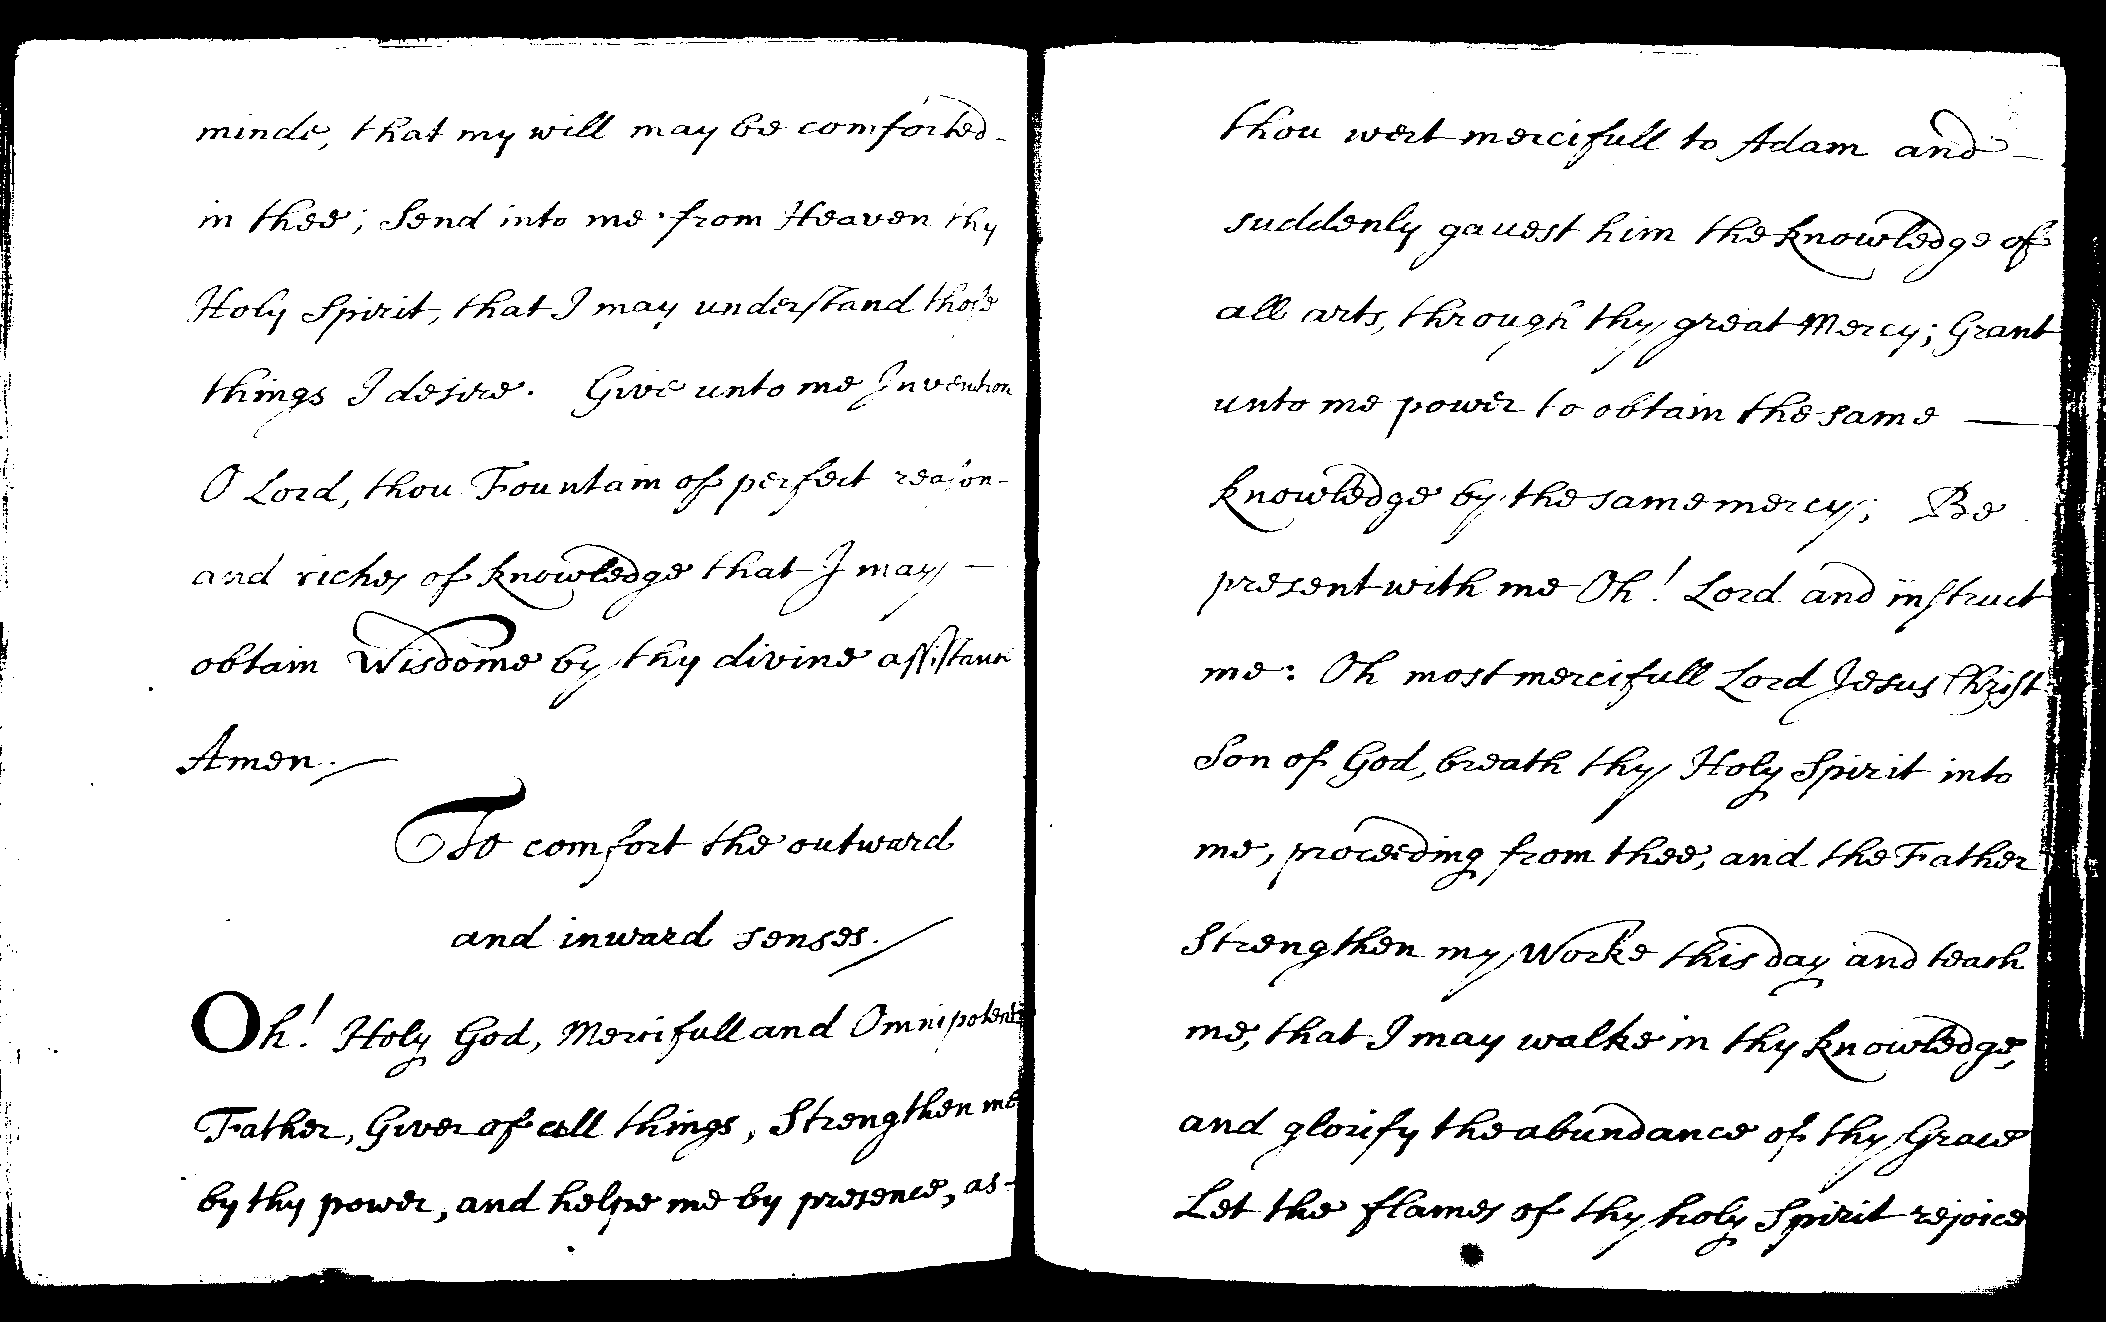 minde, that my will may be comforted -
in thee; Send into me from Heaven thy
Holy Spirit, that I may understand those
things I desire. Give unto me Invention
O Lord, thou Fountain of perfect reason -
and riches of knowledge that I may —
obtain Wisdome by thy divine assistance
Amen.
To comfort the outward
and inward senses.
Oh! Holy God, Mercifull and Omnipotent
Father, Giver of all things, Strengthen me
by thy power, and helpe me by presence, as -
thou wert mercifull to Adam and —
suddenly gauest him the knowledge of
all arts, through thy great Mercy; Grant
unto me power to obtain the same —
knowledge by the same mercy; Be
present with me Oh! Lord and instruct
me: Oh most mercifull Lord Jesus Christ
Son of God, breath thy Holy Spirit into
me, proceeding from thee, and the Father
Strengthen my Worke this day and teach
me, that I may walke in thy knowledge,
and glorify the abundance of thy Grace
Let the flames of thy holy Spirit rejoice